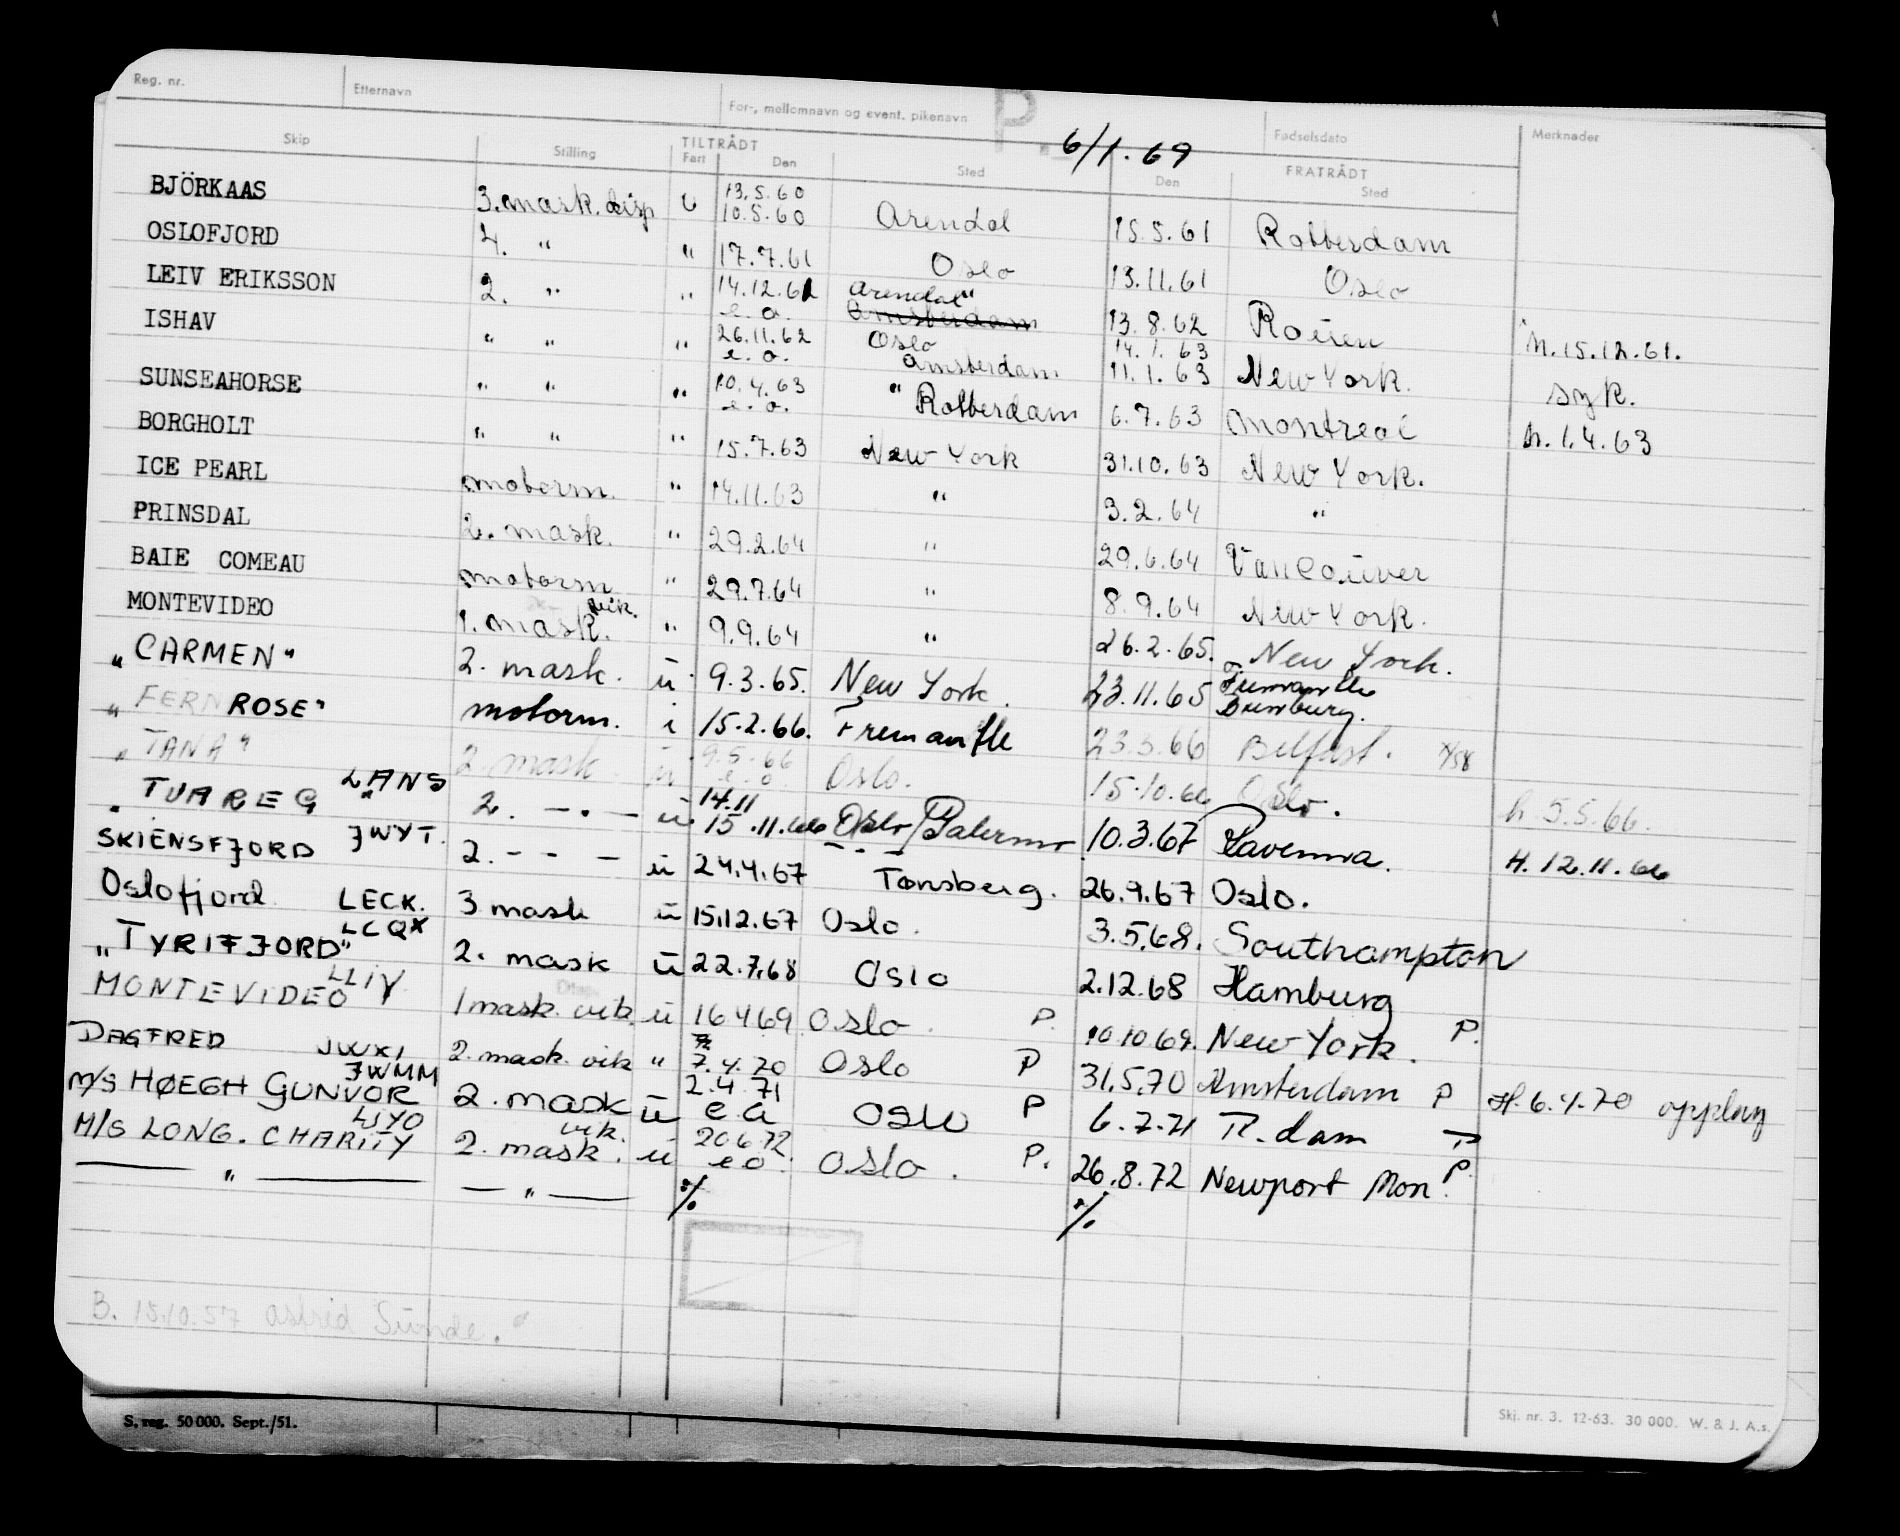 Reg. nr. Etternavn For-, mellomnavn og event. pikenavn P 6/1.69 Fødselsdato Merknader
Skip Stilling TILTRÅDT Fart Den Sted FRATRÅDT Den Sted
BJÖRKAAS 3. mask. disp u 13.5.60 10.5.60 Arendal 15.5.61 Rotterdam
OSLOFJORD 4. " " 17.7.61 Oslo 13.11.61 Oslo
LEIV ERIKSSON 2. " " 14.12.61 e.o. Arendal " Amsterdam 13.8.62 Rouen h.15.12.61.
ISHAV " " " 26.11.62 e.o. Oslo Amsterdam 14.1.63 11.1.63 New York. syk.
SUNSEAHORSE " " " 10.4.63 e.o. " Rotterdam 6.7.63 Montreal h.1.4.63
BORGHOLT " " " 15.7.63 New York 31.10.63 New York.
ICE PEARL motorm. " 14.11.63 " 3.2.64 "
PRINSDAL 2. mask. " 29.2.64 " 29.6.64 Vancouver
BAIE COMEAU motorm " 29.7.64 " 8.9.64 New York.
MONTEVIDEO 1. mask. vik. " 9.9.64 " 26.2.65. New York.
"CARMEN" 2. mask. u 9.3.65. New York. 23.11.65 Fremantle Bunbury.
"FERNROSE" motorm. i 15.2.66. Fremantle 23.3.66 Belfast.
"TANA" 2. mask. u 9.5.66 e.o. Oslo. 15.10.66 Oslo. h.5.5.66.
"TUAREG" LANS 2. -"- u 14.11 15.11.66 Oslo/Palermo 10.3.67 Ravenna. H.12.11.66
SKIENSFJORD JWYT. 2. - - - u 24.4.67 Tønsberg. 26.9.67 Oslo.
Oslofjord LECK. 3 mask u 15.12.67 Oslo. 3.5.68. Southampton
"TYRIFJORD" LCQX 2. mask u 22.7.68 Oslo 2.12.68 Hamburg
MONTEVIDEO LLIV 1 mask. vik. u 16 4 69 Oslo. P. 10.10 69. New York. P.
DAGFRED JWXI 2. mask. vik " 7.4.70 Oslo P 31.5.70 Amsterdam P H.6.4.70 opplag
M/S HØEGH GUNVOR JWMM 2. mask u 2.4.71 e.o Oslo P 6.7.71 R.dam P
M/S LONG. CHARITY LIYO 2. mask. vik. u 20.6.72. e.o. Oslo. P. 26.8.72 Newport Mon. P.
— " — — " — % %
B. 15.10.57 Astrid Sunde.
S. reg. 50 000. Sept./51. Skj. nr. 3. 12-63. 30 000. W. & J. A.s.